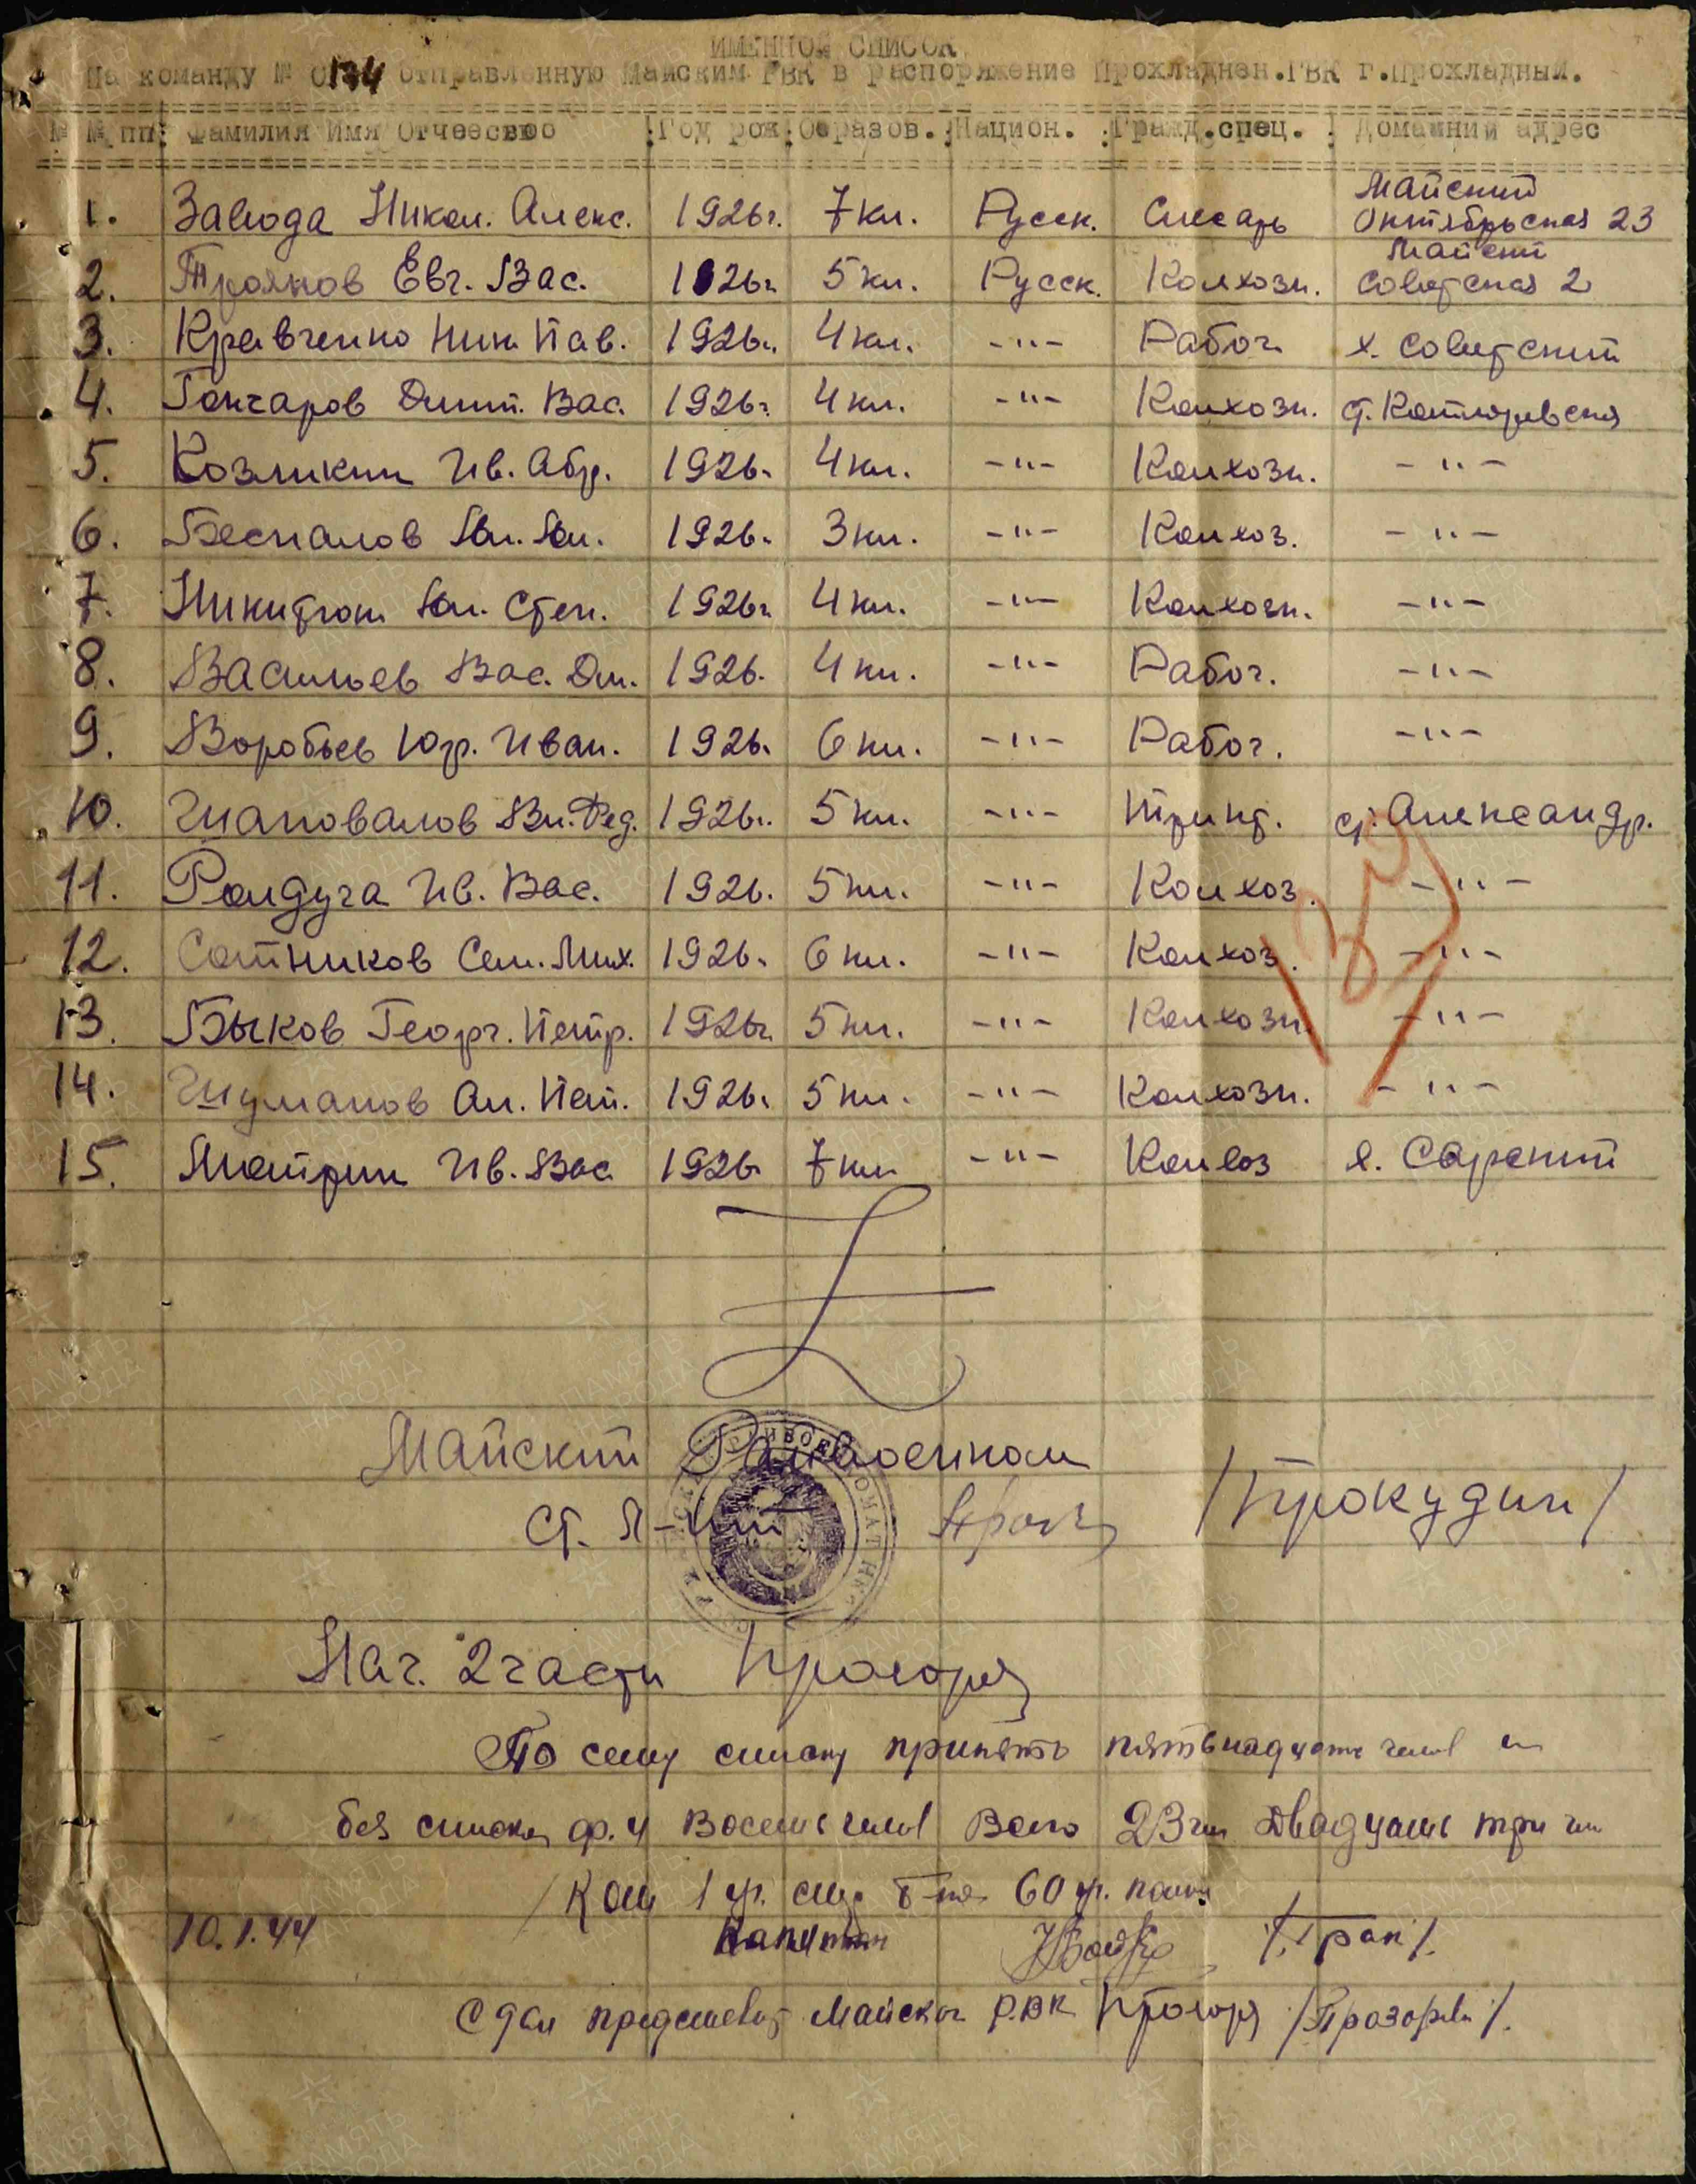 ИМЕННОЙ СПИСОК
На команду № 0134 отправленную Майским РВК в распоряжение Прохладнен.ГВК г.Прохладный.
№ № пп: Фамилия Имя Отчество :Год рож:Образов.:Национ. :Гражд.спец. : Домашний адрес
1. Завода Никол. Алекс. 1926г. 7кл. Русск. Слесарь Майский Октябрьская 23
2. Троянов Евг. Вас. 1926г. 5кл. Русск. Колхозн. Майский Советская 2
3. Кравченко Ник. Пав. 1926г. 4кл. -"- Рабоч. х. Советский
4. Гончаров Дмит. Вас. 1926г. 4кл. -"- Колхозн. ст. Котляревская
5. Козликин Ив. Абр. 1926. 4кл. -"- Колхозн. -"-
6. Беспалов Вл. Вл. 1926. 3кл. -"- Колхоз. -"-
7. Никитюк Вл. Степ. 1926г. 4кл. -"- Колхозн. -"-
8. Васильев Вас. Дм. 1926. 4кл. -"- Рабоч. -"-
9. Воробьев Юр. Иван. 1926. 6кл. -"- Рабоч. -"-
10. Шаповалов Вл. Фед. 1926г. 5кл. -"- ст. Александр.
11. Ролдуга Ив. Вас. 1926. 5кл. -"- Колхоз. -"-
12. Сотников Сем. Мих. 1926. 6кл. -"- Колхоз. -"-
13. Быков Георг. Петр. 1926г. 5кл. -"- Колхозн. -"-
14. Шуманов Ал. Пет. 1926. 5кл. -"- Колхозн. -"-
15. Мотрин Ив. Вас. 1926 7кл -"- Колхоз х. Сарский
134
Майский Райвоенком
Ст. Л-нт /Прокудин/
Нач. 2 части
По сему списку принято пятьнадцать челов
без списка восемь челов Всего 23 чел двадцать три чел
Ком 1 60
10.1.44 Капитан
Сдал представит Майского РВК /Прозоров/.
ПАМЯТЬ НАРОДА